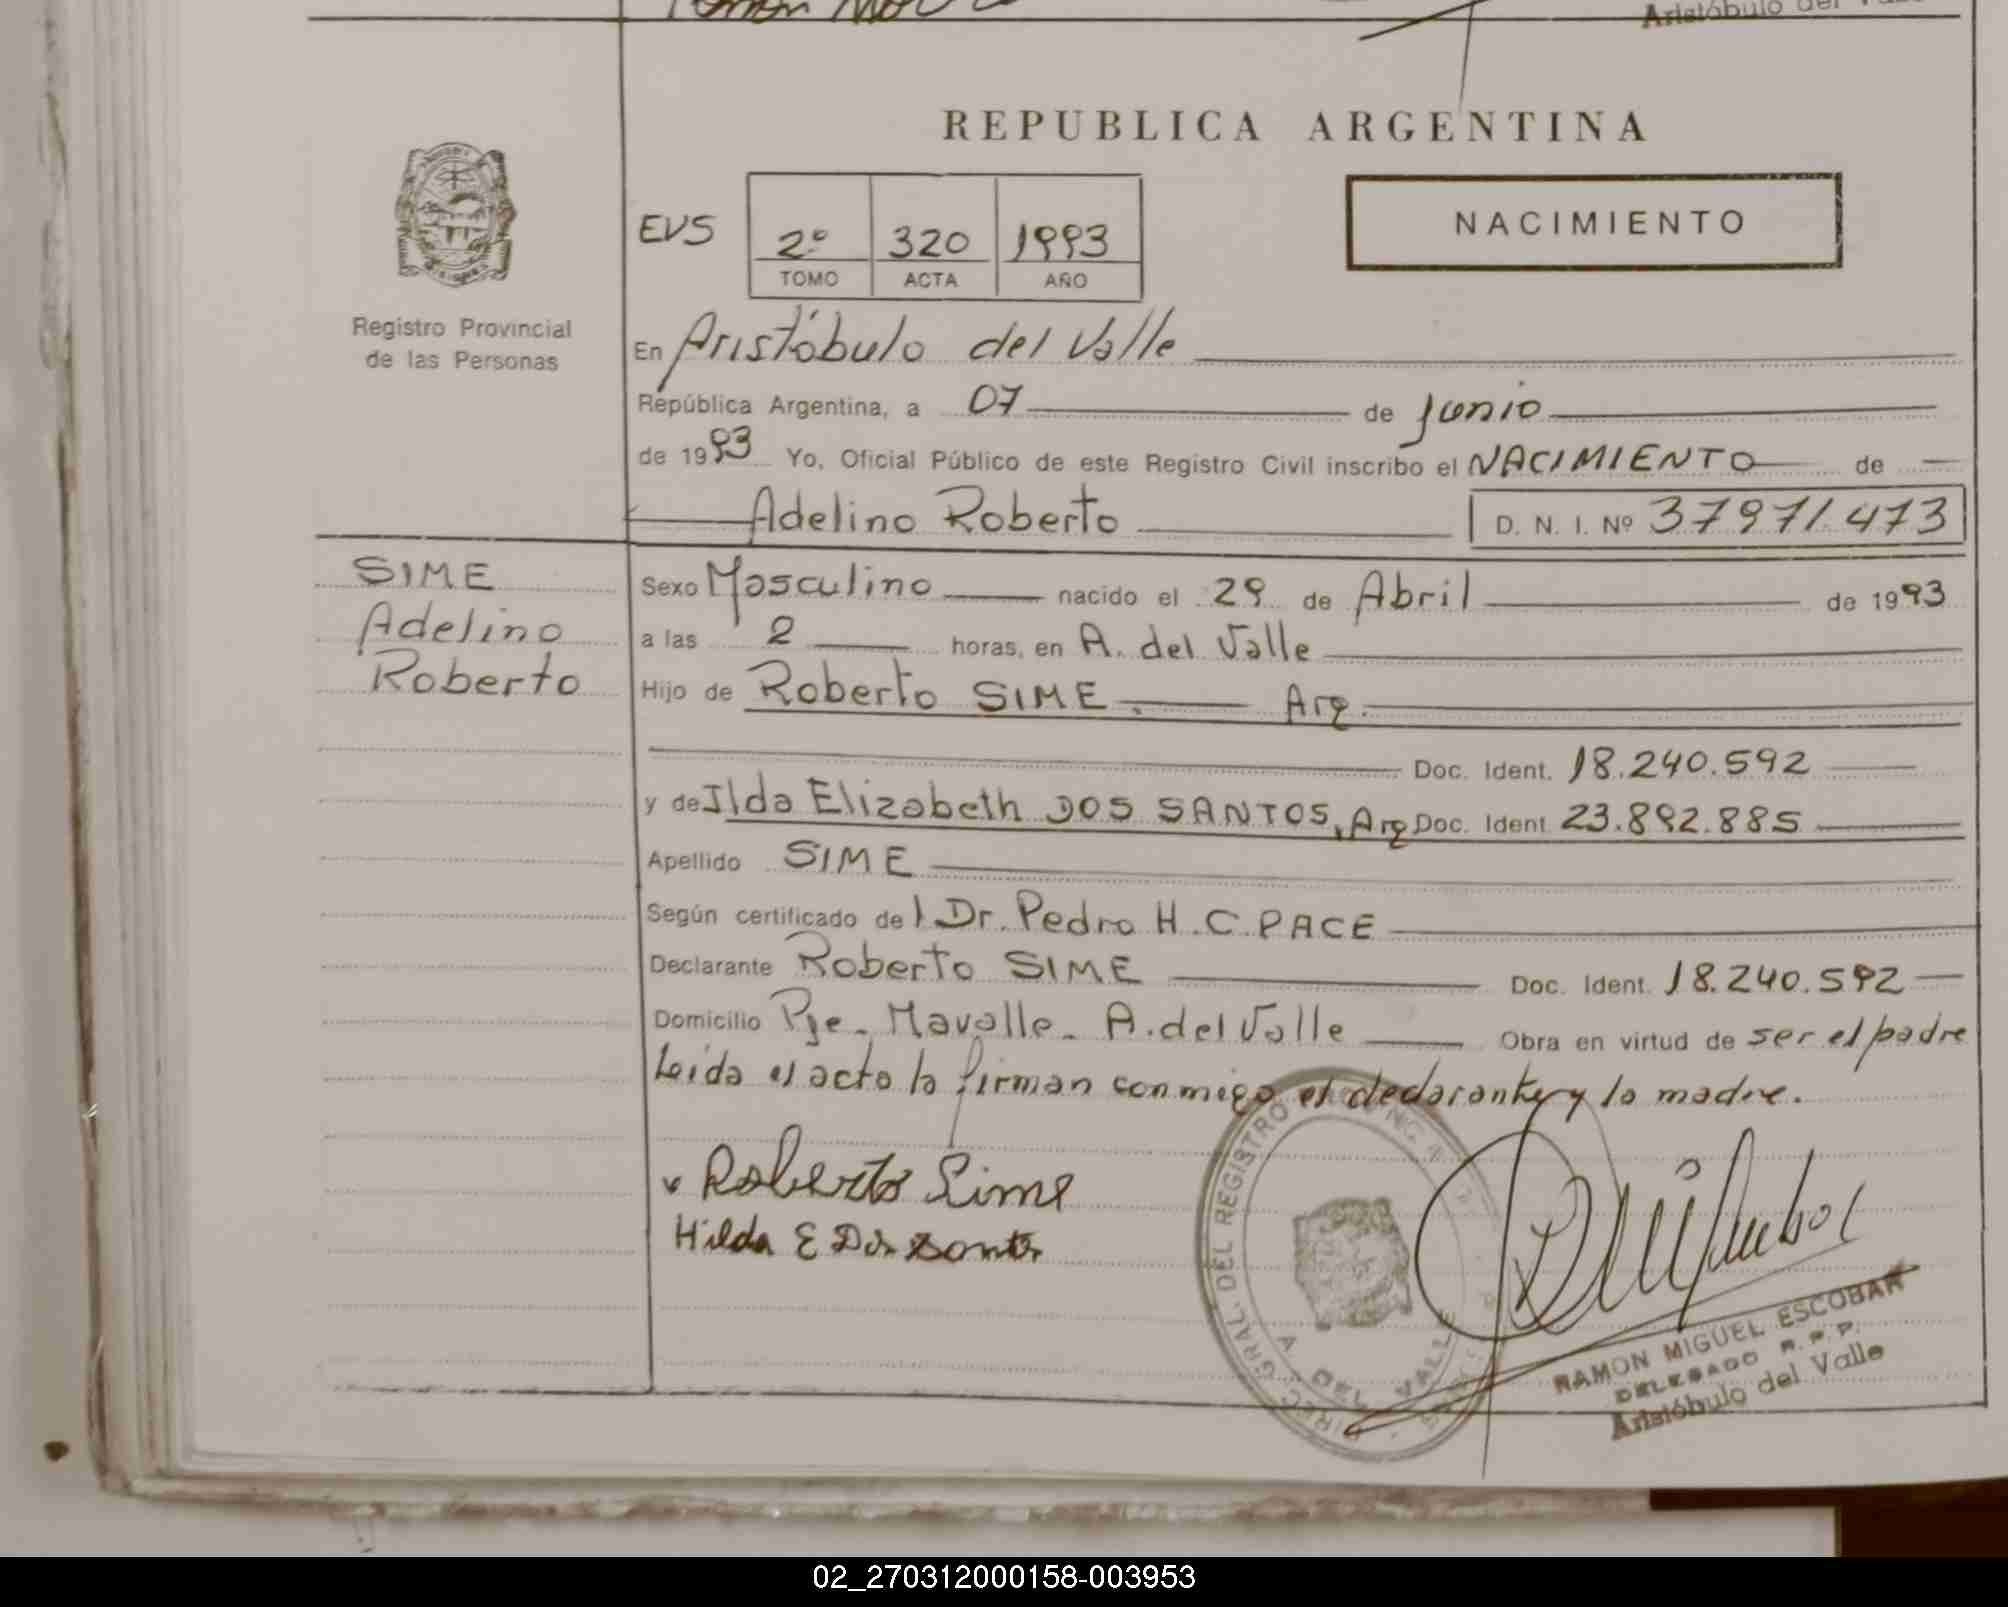 Aristóbulo del
REPUBLICA ARGENTINA
NACIMIENTO
EVS
2º 320 1993
TOMO ACTA AÑO
Registro Provincial
de las Personas
En Aristóbulo del Valle
República Argentina, a 07 de Junio
de 1993 Yo, Oficial Público de este Registro Civil inscribo el NACIMIENTO de
Adelino Roberto D. N. I. Nº 37971.473
SIME
Adelino
Roberto
Sexo Masculino nacido el 29 de Abril de 1993
a las 2 horas, en A. del Valle
Hijo de Roberto SIME. Arg.
Doc. Ident. 18.240.592
y de Ilda Elizabeth DOS SANTOS, Arg Doc. Ident 23.892.885
Apellido SIME
Según certificado del Dr. Pedro H. C. PACE
Declarante Roberto SIME Doc. Ident. 18.240.592
Domicilio Pje. Mavalle. A. del Valle Obra en virtud de ser el padre
Leida el acta la firman conmigo el declarante y la madre.
Roberto Sime
Hilda E Dos Santos
DIREC. GRAL. DEL REGISTRO
A. DEL VALLE
RAMON MIGUEL ESCOBAR
DELEGADO R. P. P.
Aristóbulo del Valle
02_270312000158-003953